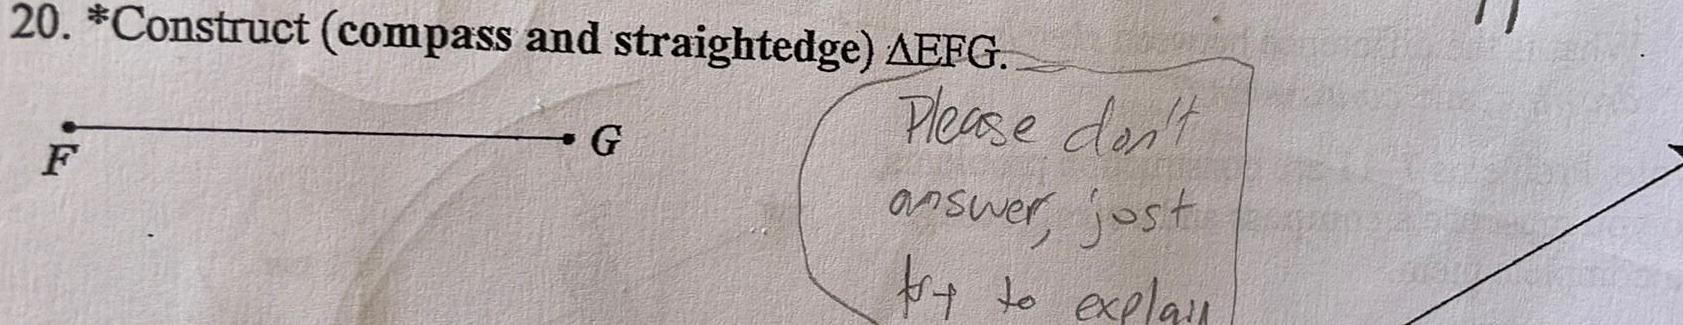 20. *Construct (compass and straightedge) ΔEFG.
F
G
Please don't
answer, just
try to explain